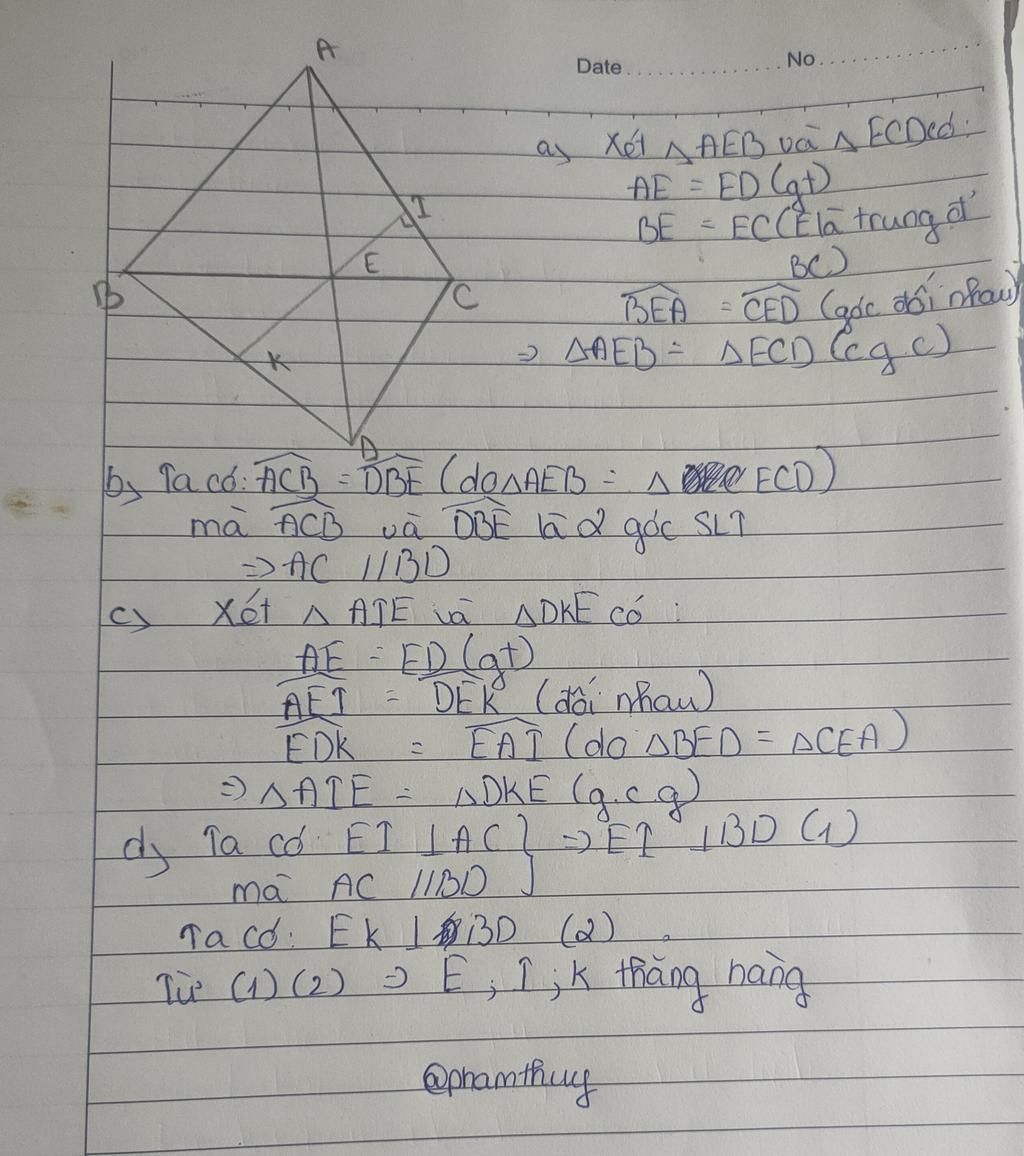 Date ............... No ...............
A
I
E
B
C
K
D
a) Xét △AEB và △ECD có:
AE = ED (gt)
BE = EC (E là trung đ'
BC)
BEA = CED (góc đối nhau)
⇒ △AEB = △ECD (c g c)
b) Ta có: ACB = DBE (do △AEB = △ ECD)
mà ACB và DBE là 2 góc SLT
⇒ AC // BD
c) Xét △AIE và △DKE có:
AE = ED (gt)
AEI = DEK (đối nhau)
EDK = EAI (do △BED = △CEA)
⇒ △AIE = △DKE (g.c.g)
d) Ta có EI ⊥ AC } ⇒ EI ⊥ BD (1)
mà AC // BD
Ta có: EK ⊥ BD (2)
Từ (1) (2) ⇒ E ; I ; K thẳng hàng
@phamthuy